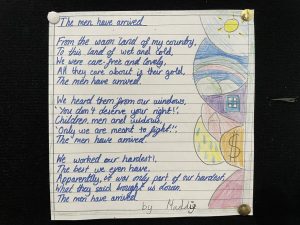 The men have arrived
From the warm land of my country,
To this land of wet and cold,
We were care-free and lovely,
All they care about is their gold,
The men have arrived.
We heard them from our windows,
"You don't deserve your right!",
Children, men and widows,
"Only we are meant to fight!",
The men have arrived.
We worked our hardest,
The best we even have,
Apparently, it was only part of our hardest,
What they said brought us down,
The men have arrived.
by Maddie
$